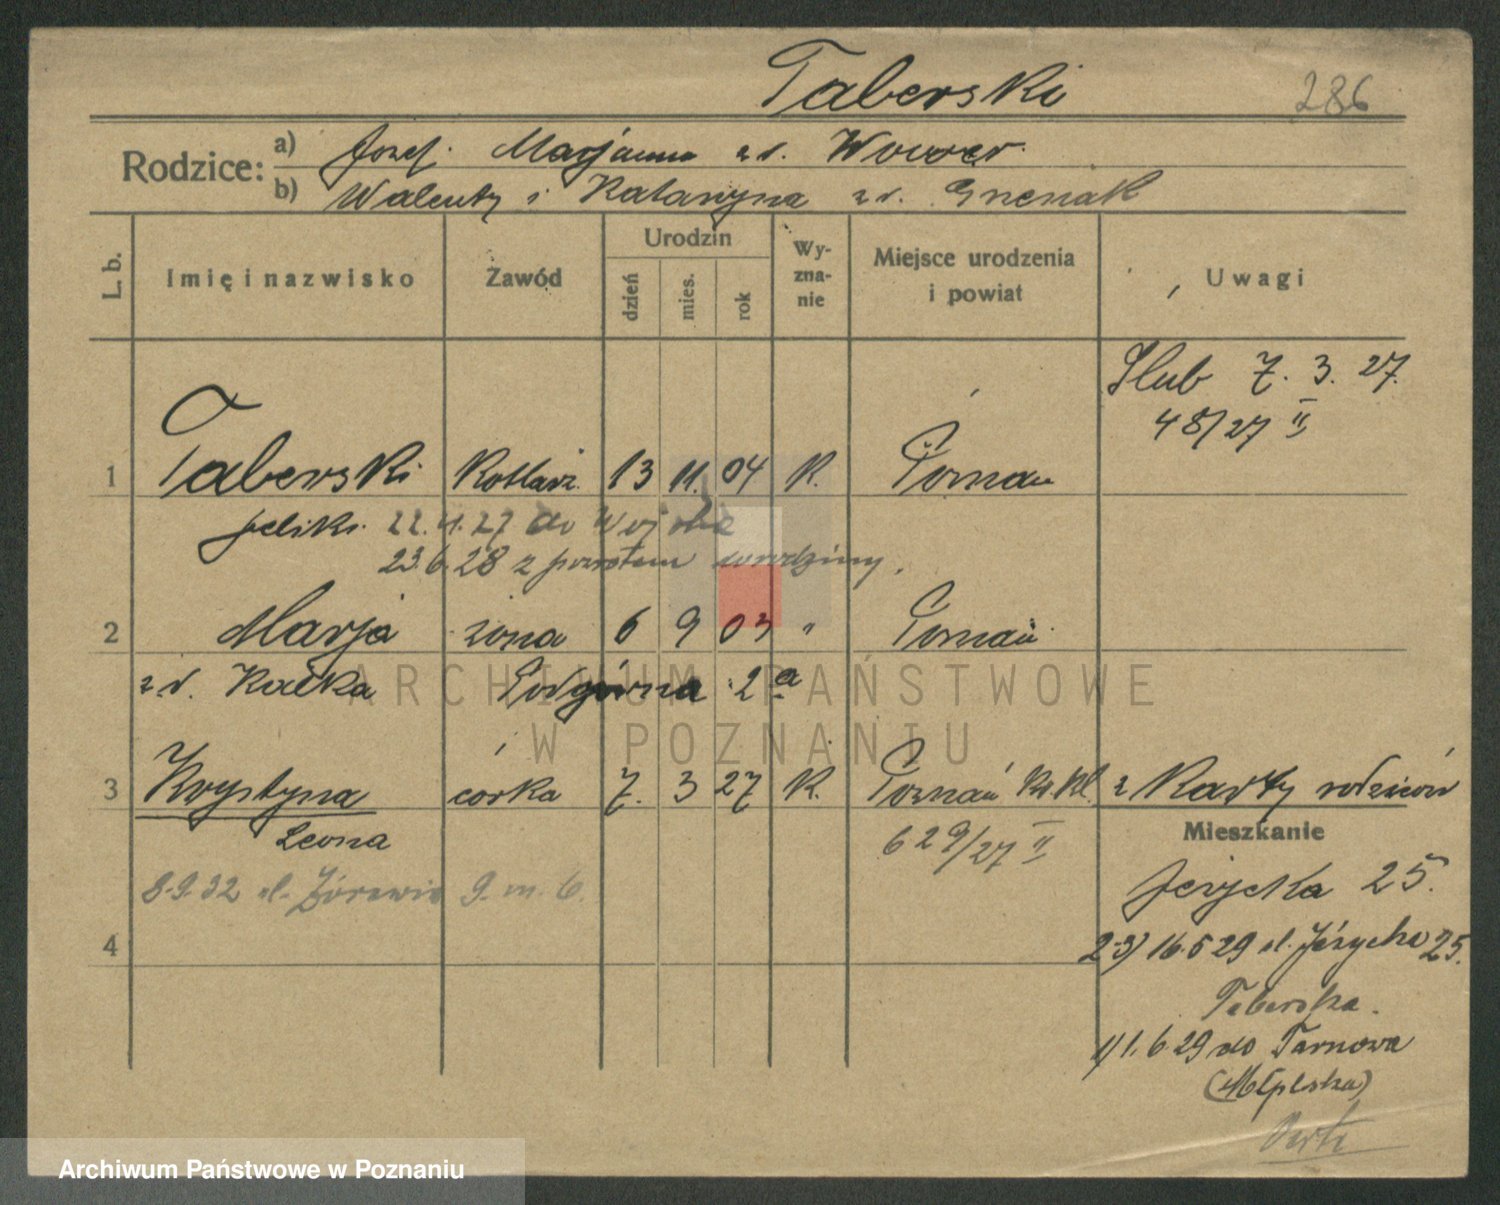 Taberski 286
Rodzice: a) Józef. Marjanna z d. Wower
b) Walenty i Katarzyna z d.
L. b. Imię i nazwisko Zawód Urodzin dzień mies. rok Wy-zna-nie Miejsce urodzenia i powiat Uwagi
Ślub 7. 3. 27.
48/27 II
1 Taberski Kotlarz. 13 11. 04 K. Poznań
Feliks. 22.4.27 do Wojska
23.6.28 z powrotem
2 Marja żona 6 9 03 " Poznań
z d. Kaczka Podgórna 2a
3 Krystyna córka 7. 3 27 K. Poznań z Karty rodziców
Leona 629/27 II
Mieszkanie
8.9.32 ul. Żórawia 9. m. 6.
Jeżycka 25.
4
2-3) 16.5 29 ul. Jeżycka 25.
Taberska.
1) 1.6.29 do Tarnowa
(Młplska)
ARCHIWUM PAŃSTWOWE
W POZNANIU
Archiwum Państwowe w Poznaniu